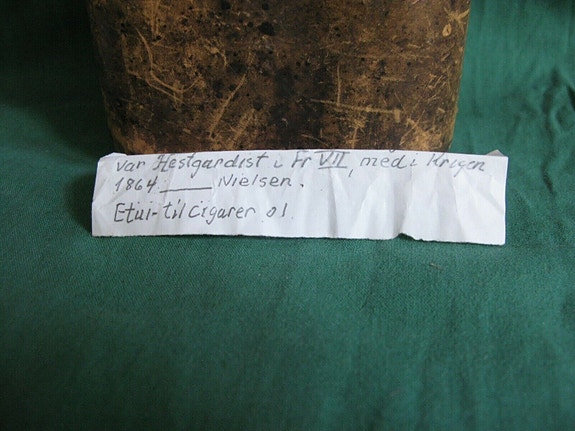 var Hestgardist i Fr VII, med i Krigen
1864. ____ Nielsen.
Etui-til cigarer ol.